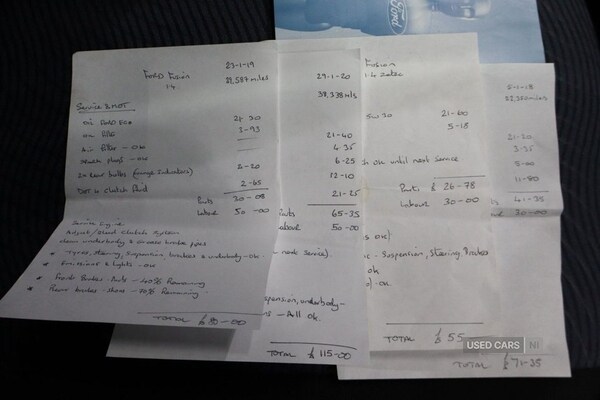 Ford
23-1-19
FORD Fusion
1.4
Service & MOT
oil FORD Eco
oil filter
3-93
Air filter - OK
Spark plugs - OK
2x rear bulbs (orange indicators)
2-20
Dot 4 clutch fluid
2-65
Parts 30-08
Labour 50-00
Service Engine
Adjust/Bleed Clutch System
clean underbody & grease brake pipes
* Tyres, steering, Suspension, brakes & underbody - ok.
* Emissions & lights - OK
* Front Brakes - Pads - 40% Remaining
* Rear brakes - shoes - 70% Remaining
TOTAL £80-00
29-1-20
38,338 mls
21-40
4-35
6-25
12-10
21-25
65-35
50-00
next service).
suspension, underbody-
- All ok.
TOTAL £115-00
Fusion
1.4 Zetec
5w30
21-60
5-18
ok until next service
Parts £26-78
Labour 30-00
ok!
- Suspension, Steering, Brakes
ok
ok.
TOTAL £55
5-1-18
21-20
3-35
5-00
11-80
41-35
30-00
TOTAL £71-35
USED CARS NI